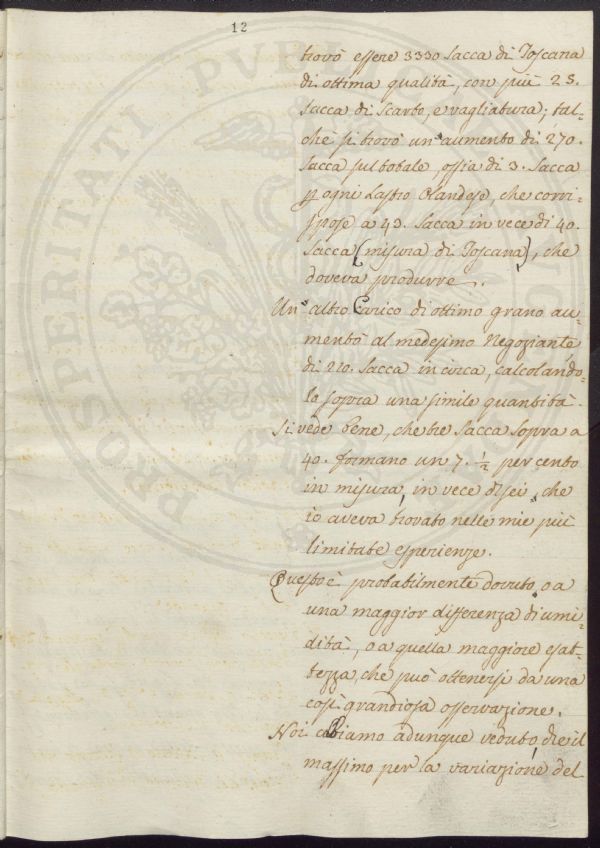 12
trovò essere 3330 sacca di Toscana
di ottima qualità, con più 23.
sacca di scarto, e vagliatura; tal-
chè si trovò un aumento di 270.
sacca sul totale, ossia di 3. sacca
p ogni Lastro Olandese, che corri-
spose a 43. sacca in vece di 40.
sacca (misura di Toscana), che
doveva produrre.
Un altro Carico di ottimo grano au-
mentò al medesimo Negoziante
di 220. sacca in circa, calcolando-
lo sopra una simile quantità.
Si vede bene, che tre sacca sopra a
40. formano un 7. ½ per cento
in misura, in vece di sei, che
io aveva trovato nelle mie più
limitate esperienze.
Questo è probabilmente dovuto, o a
una maggior differenza di umi-
dità, o a quella maggiore esat-
tezza, che può ottenersi da una
così grandiosa osservazione.
Noi abbiamo adunque veduto, che il
massimo per la variazione del
PROSPERITATI PUBLICAE